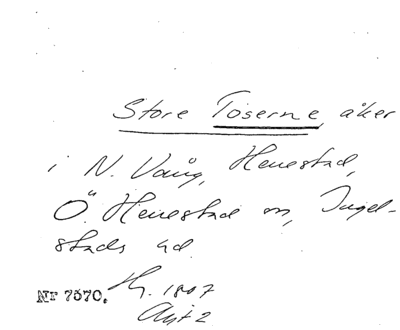 Store Toserne, åker
i N. Vång, Henestad,
Ö. Henestad sn, Ingel-
stads hd.
Nr 7570. 1807
Akt 2